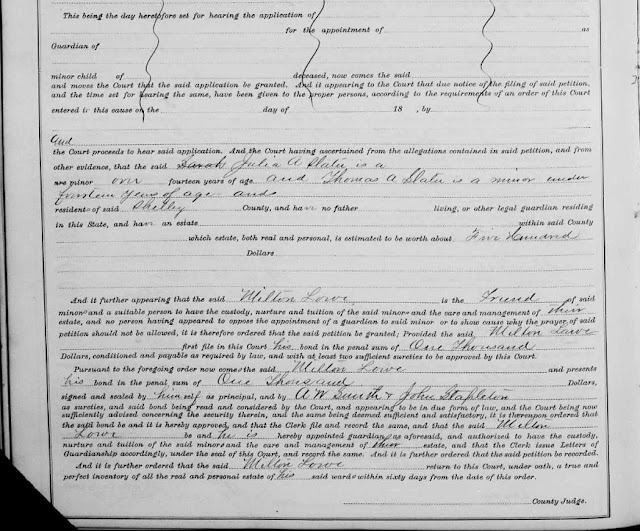 This being the day heretofore set for hearing the application of
for the appointment of as
Guardian of
minor child of deceased, now comes the said
and moves the Court that the said application be granted. And it appearing to the Court that due notice of the filing of said petition,
and the time set for hearing the same, have been given to the proper persons, according to the requirements of an order of this Court
entered in this cause on the day of 18 , by
And
the Court proceeds to hear said application. And the Court having ascertained from the allegations contained in said petition, and from
other evidence, that the said Sarah Julia A Slater is a
are minor over fourteen years of age and Thomas A Slater is a minor under
fourteen years of age and
residents of said Shelby County, and have no father living, or other legal guardian residing
in this State, and have an estate within said County
which estate, both real and personal, is estimated to be worth about Five Hundred
Dollars
And it further appearing that the said Milton Lowe is the Friend of said
minors and a suitable person to have the custody, nurture and tuition of the said minors and the care and management of their
estate, and no person having appeared to oppose the appointment of a guardian to said minor or to show cause why the prayer of said
petition should not be allowed, it is therefore ordered that the said petition be granted; Provided the said Milton Lowe
first file in this Court his bond in the penal sum of One Thousand
Dollars, conditioned and payable as required by law, and with at least two sufficient sureties to be approved by this Court.
Pursuant to the foregoing order now comes the said Milton Lowe and presents
his bond in the penal sum of One Thousand Dollars,
signed and sealed by himself as principal, and by A W Smith & John Stapleton
as sureties, and said bond being read and considered by the Court, and appearing to be in due form of law, and the Court being now
sufficiently advised concerning the security therein, and the same being deemed sufficient and satisfactory, it is thereupon ordered that
the said bond be and it is hereby approved, and that the Clerk file and record the same, and that the said Milton
Lowe be and he is hereby appointed guardian as aforesaid, and authorized to have the custody,
nurture and tuition of the said minors and the care and management of their estate, and that the Clerk issue Letters of
Guardianship accordingly, under the seal of this Court, and record the same. And it is further ordered that the said petition be recorded.
And it is further ordered that the said Milton Lowe return to this Court, under oath, a true and
perfect inventory of all the real and personal estate of his said wards within sixty days from the date of this order.
County Judge.